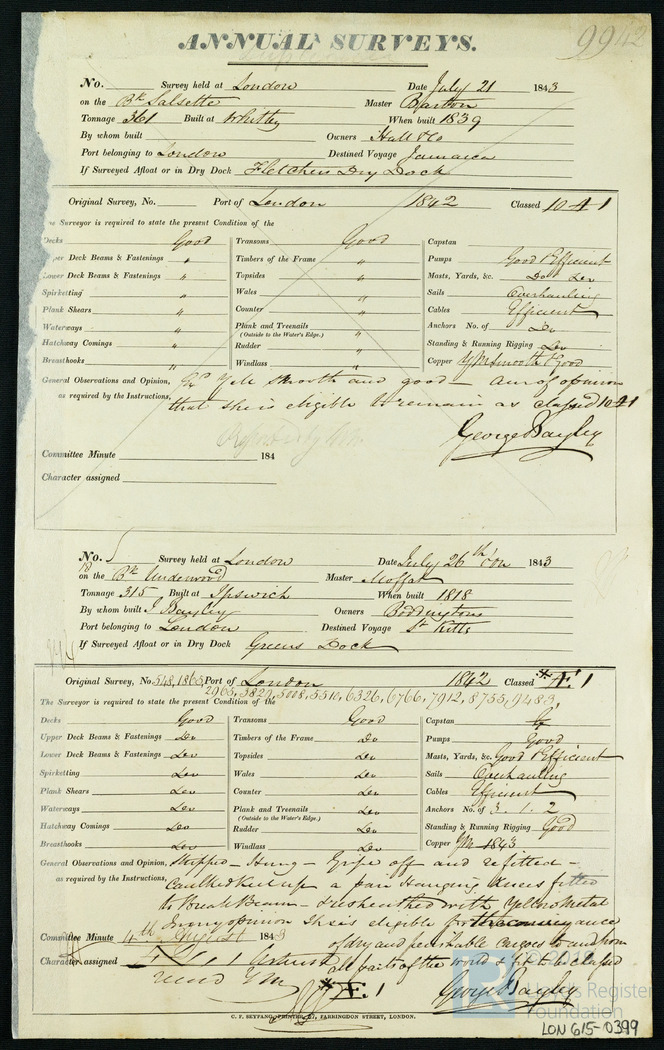 9942
ANNUAL SURVEYS.
No. Survey held at London Date July 21 1843
on the Bk Salsette Master Barton
Tonnage 361 Built at Whitby When built 1839
By whom built Owners Hall & Co
Port belonging to London Destined Voyage Jamaica
If Surveyed Afloat or in Dry Dock Fletchers Dry Dock
Original Survey, No. Port of London 1842 Classed 10 A 1
The Surveyor is required to state the present Condition of the
Decks Good Transoms Good Capstan
Upper Deck Beams & Fastenings " Timbers of the Frame " Pumps Good & Efficient
Lower Deck Beams & Fastenings " Topsides " Masts, Yards, &c. Do Do
Spirketting " Wales " Sails Overhauling
Plank Shears " Counter " Cables Efficient
Waterways " Plank and Treenails " Anchors No. of Do
(Outside to the Water's Edge.)
Hatchway Comings " Rudder " Standing & Running Rigging Do
Breasthooks " Windlass " Copper YM smooth & Good
General Observations and Opinion, YM smooth and good – am of opinion
as required by the Instructions, that she is eligible to remain as classed 10 A 1
George Bayley
Committee Minute 184
Character assigned
No. Survey held at London Date July 26th 1843
on the Bk Underwood Master Moffat
Tonnage 315 Built at Ipswich When built 1818
By whom built J Bayley Owners Boddingtons
Port belonging to London Destined Voyage St Kitts
If Surveyed Afloat or in Dry Dock Greens Dock
Original Survey, No 548, 1865, Port of London 1842 Classed *Æ 1
2965, 3829, 5008, 5510, 6326, 6766, 7912, 8755, 9483,
The Surveyor is required to state the present Condition of the
Decks Good Transoms Good Capstan
Upper Deck Beams & Fastenings Do Timbers of the Frame Do Pumps Good
Lower Deck Beams & Fastenings Do Topsides Do Masts, Yards, &c. Good & Efficient
Spirketting Do Wales Do Sails Overhauling
Plank Shears Do Counter Do Cables Efficient
Waterways Do Plank and Treenails Do Anchors No. of 3 . 1 . 2
(Outside to the Water's Edge.)
Hatchway Comings Do Rudder Do Standing & Running Rigging Good
Breasthooks Do Windlass Do Copper YM 1843
General Observations and Opinion, Stripped – Hung – Gripe off and refitted –
as required by the Instructions, Caulked Keel up a pair Hanging Knees fitted
to Break Beam – & resheathed with Yellow Metal
In my opinion She is eligible for the conveyance
Committee Minute 4th August 1843 of dry and perishable cargoes to and from
Character assigned Æ 1 all parts of the world & fit to be classed
*Æ 1 George Bayley
C. F. SEYFANG, PRINTER, 57, FARRINGDON STREET, LONDON.
Lloyd's Register
Foundation
LON 615-0399